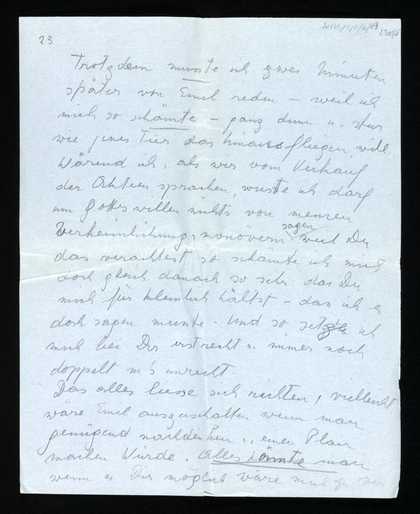 23
Trotzdem musste ich zwei Minuten
später von Emil reden – weil ich
mich so schämte – ganz dumm u. stur
wie jenes Tier das hinausfliegen will.
Wärend ich, als wir vom Verkauf
der Aktien sprachen, wusste ich darf
um Gottes willen nichts von meinen
sagen
Verheimlichungsmanövern weil Du
das verachtest so schämte ich mich
doch gleich danach so sehr das Du
mich für kleinlich hältst – das ich es
doch sagen musste. Und so setzte ich
mich bei Dir erstrecht u. immer noch
doppelt in's unrecht
Das alles liesse sich richten, vielleicht
wäre Emil auszuschalten wenn man
genügend nachdenken u. einen Plan
machen würde. Alles könnte man
wenn es Dir möglich wäre mich zu